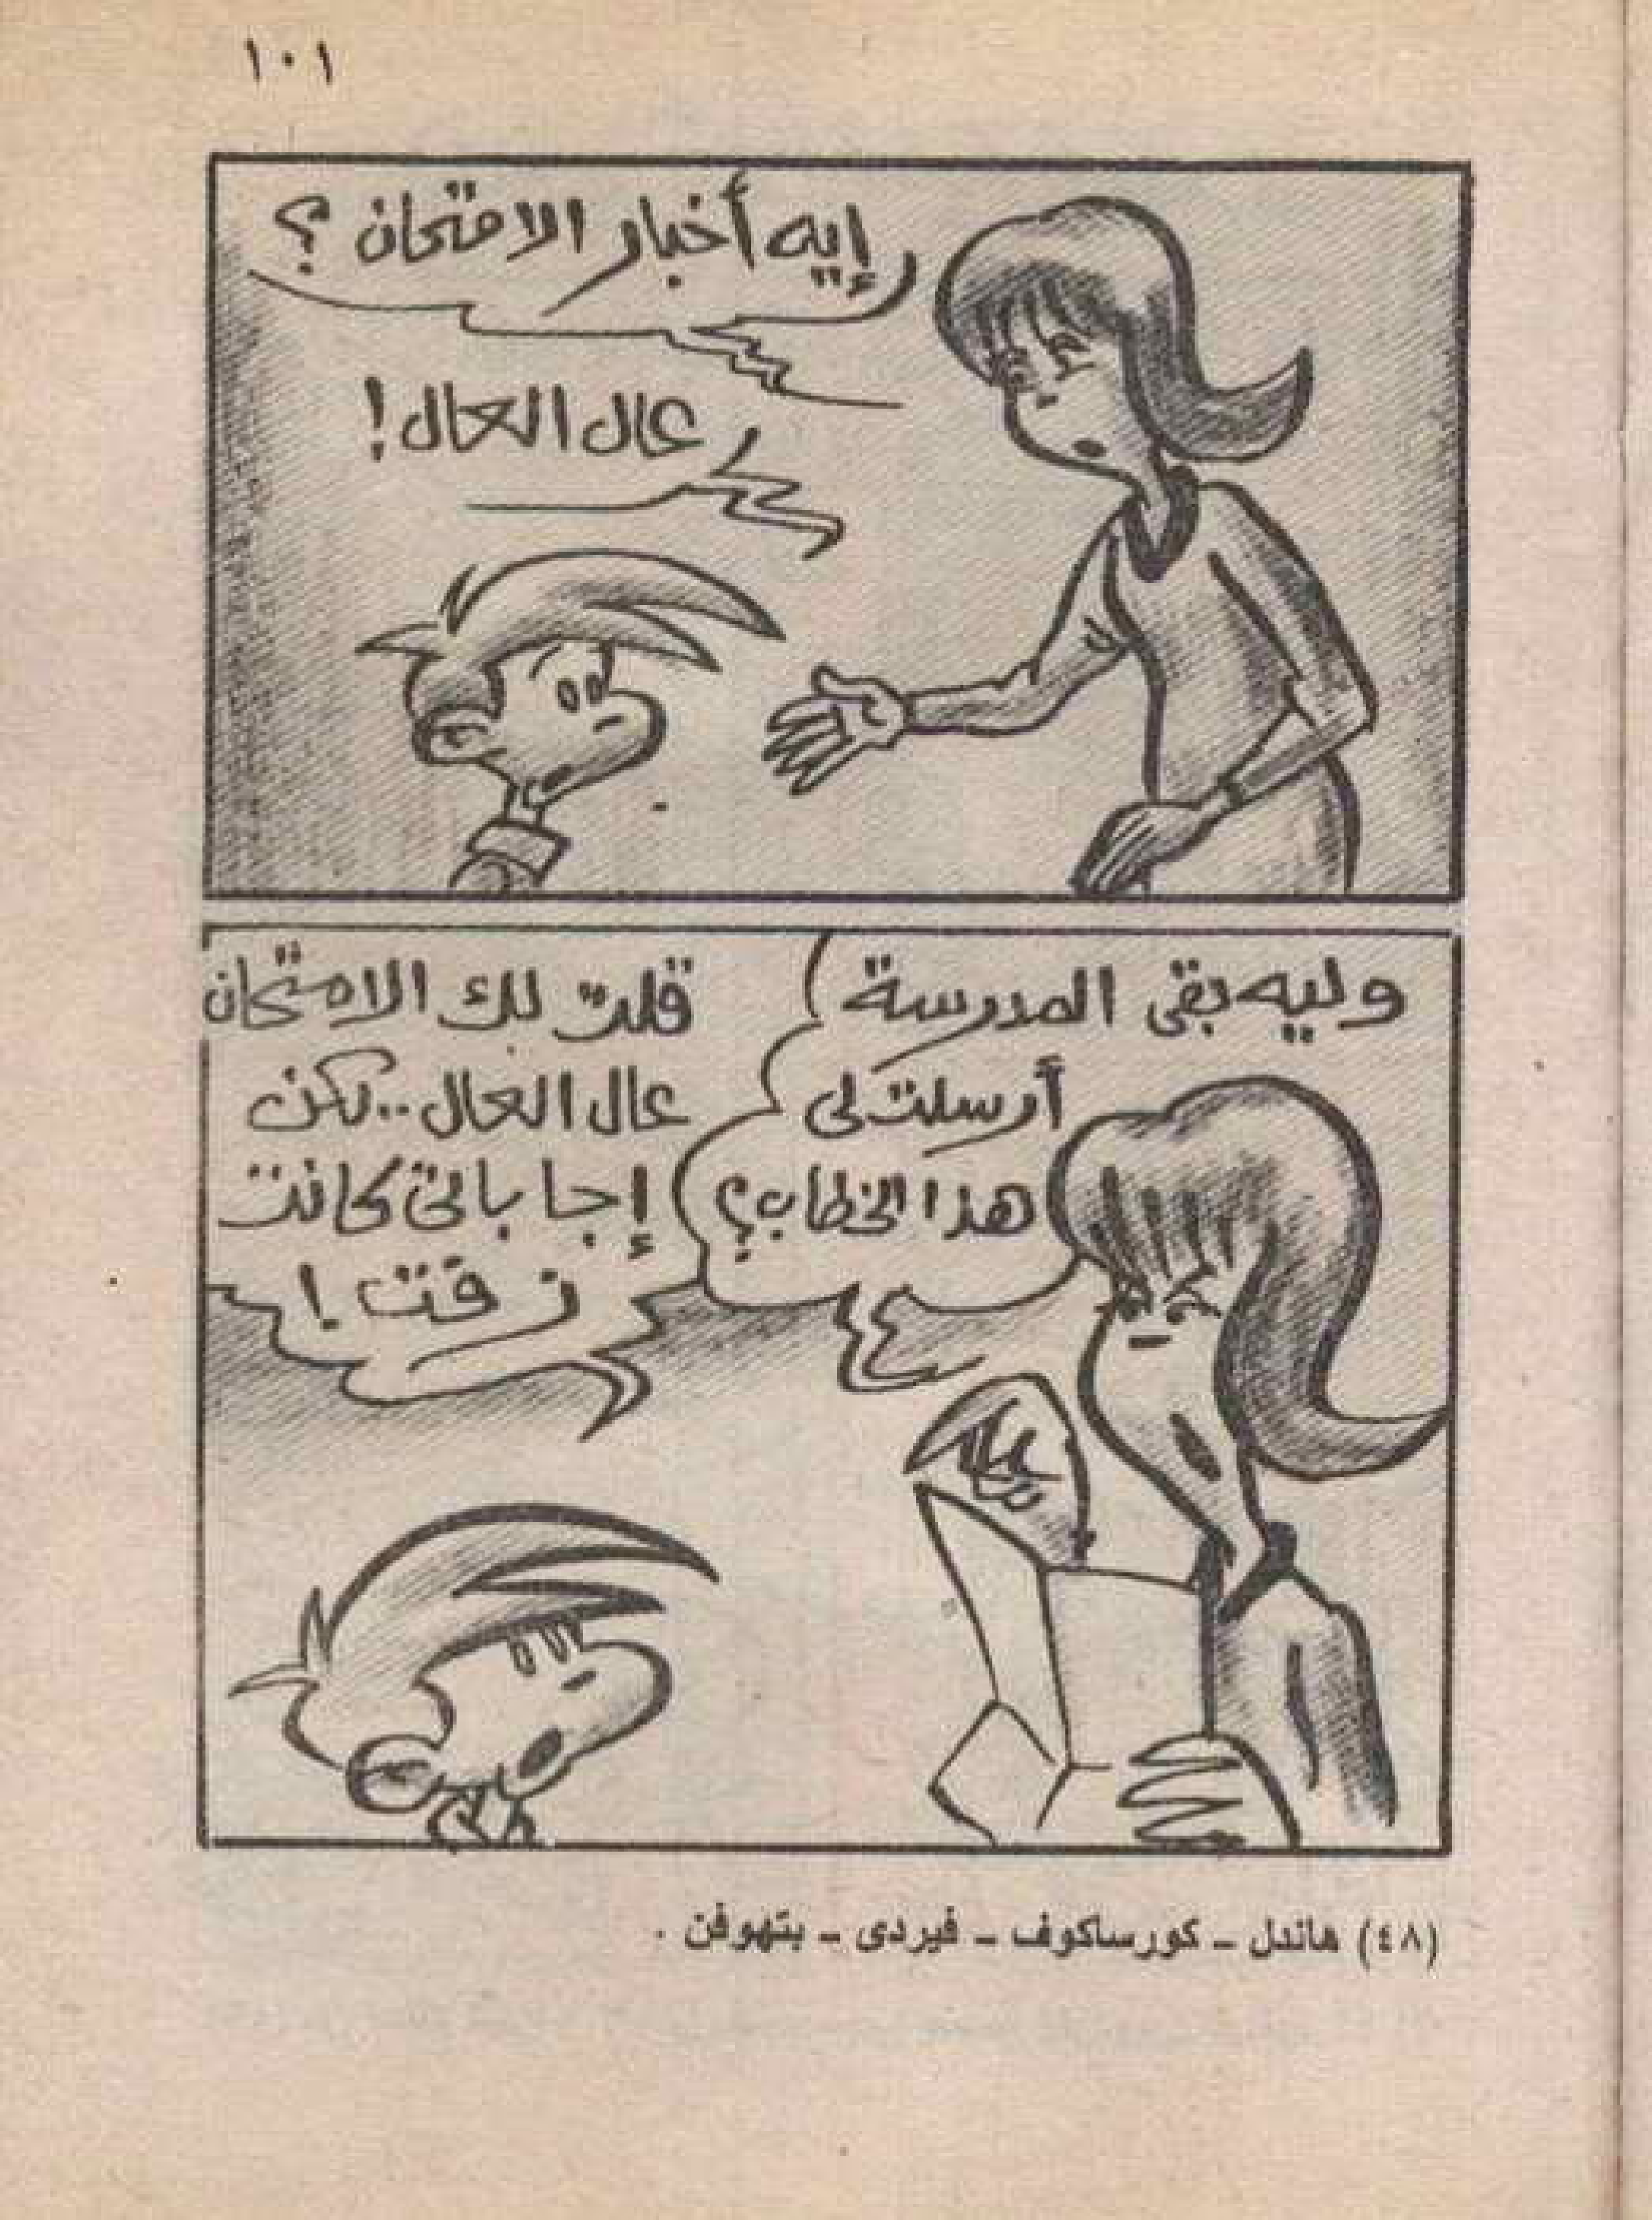 ١٠١
إيه أخبار الامتحان ؟
عال العال !
وليه بقى المدرسة
أرسلت لى
هذا الخطاب ؟
قلت لك الامتحان
عال العال .. لكن
إجاباتى كانت
زفت !
(٤٨) هاندل - كورساكوف - فيردى - بتهوفن .